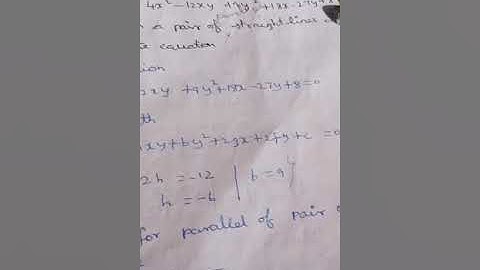 4x² - 12xy + 9y² + 18x - 27y + 8
a pair of straight lines
equation
ion
2xy + 9y² + 18x - 27y + 8 = 0
th
xy + by² + 2gx + 2fy + c = 0
2h = -12 | b = 9
h = -6
for parallel of pair